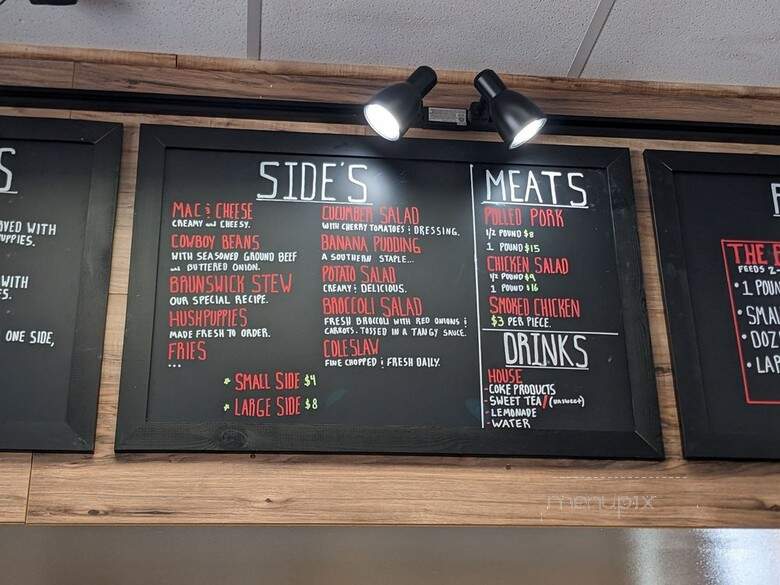 S
VED WITH
UPPIES.
WITH
S.
ONE SIDE,
SIDE'S
MAC & CHEESE
CREAMY AND CHEESY.
COWBOY BEANS
WITH SEASONED GROUND BEEF
AND BUTTERED ONION.
BRUNSWICK STEW
OUR SPECIAL RECIPE.
HUSHPUPPIES
MADE FRESH TO ORDER.
FRIES
...
CUCUMBER SALAD
WITH CHERRY TOMATOES & DRESSING.
BANANA PUDDING
A SOUTHERN STAPLE...
POTATO SALAD
CREAMY & DELICIOUS.
BROCCOLI SALAD
FRESH BROCCOLI WITH RED ONIONS &
CARROTS. TOSSED IN A TANGY SAUCE.
COLESLAW
FINE CHOPPED & FRESH DAILY.
* SMALL SIDE $4
* LARGE SIDE $8
MEATS
PULLED PORK
1/2 POUND $8
1 POUND $15
CHICKEN SALAD
1/2 POUND $9
1 POUND $16
SMOKED CHICKEN
$3 PER PIECE.
DRINKS
HOUSE
- COKE PRODUCTS
- SWEET TEA / (UNSWEET)
- LEMONADE
- WATER
THE
FEEDS 2
• 1 POUN
• SMAL
• DOZ
• LAR
menupix